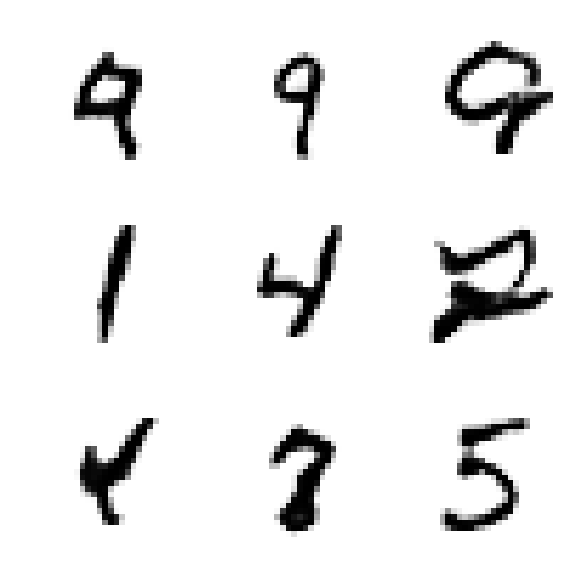 9 9 9
1 4 2
4 8 5